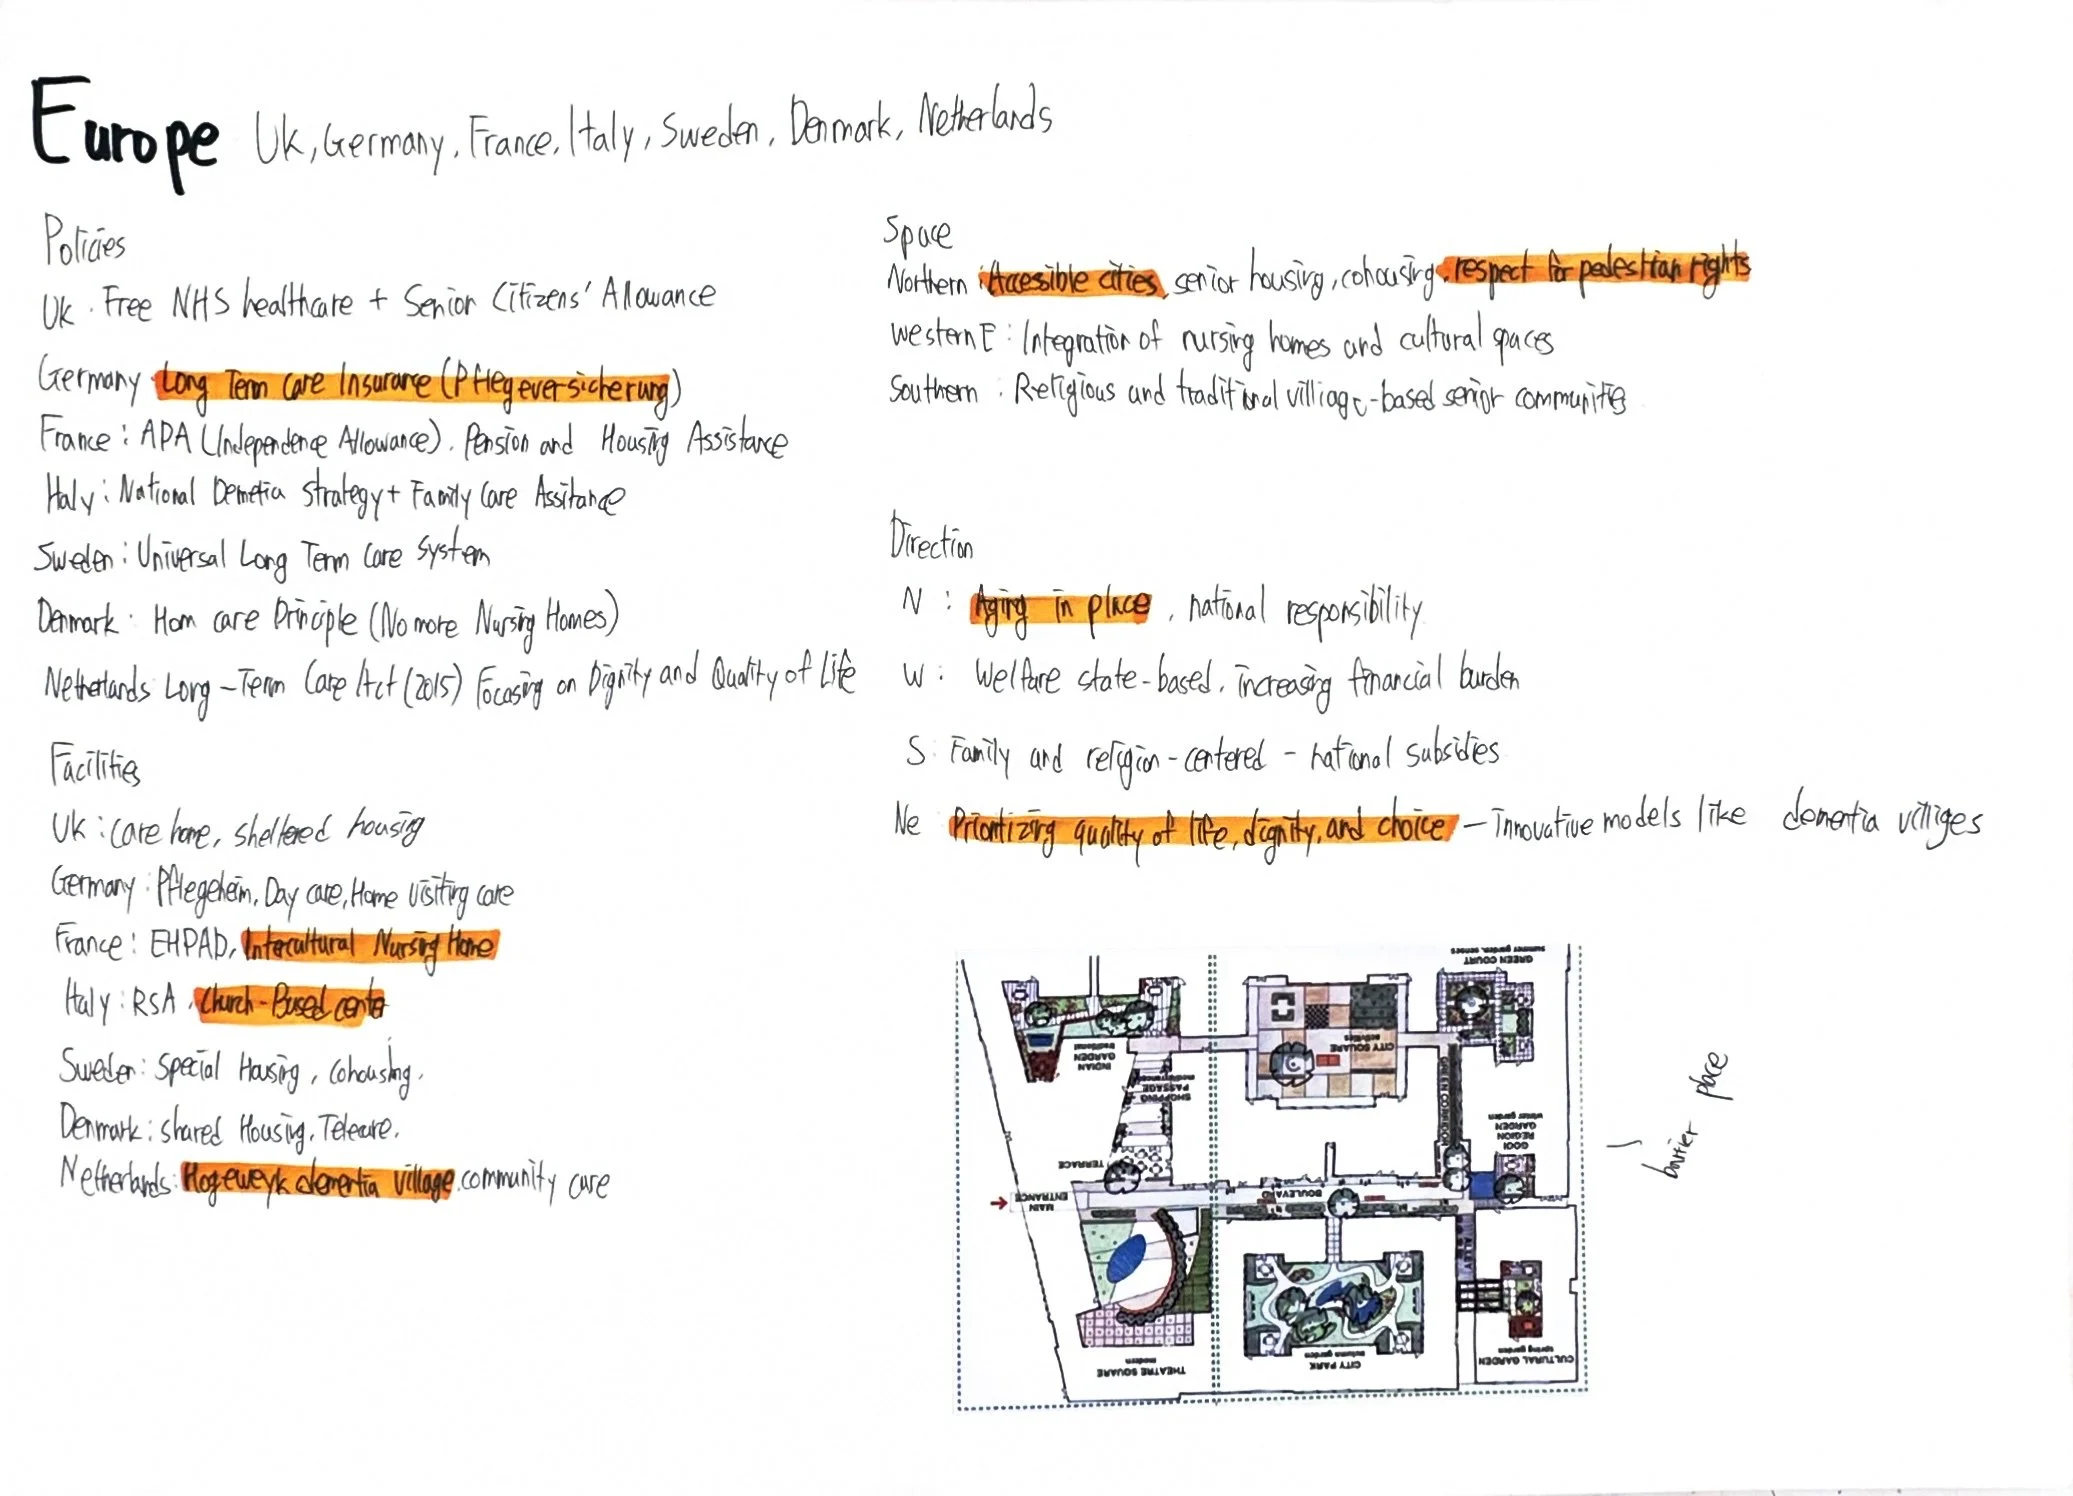 Europe Uk, Germany, France, Italy, Sweden, Denmark, Netherlands
Policies
Uk . Free NHS healthcare + Senior Citizens' Allowance
Germany Long Term care Insurance (Pflegeversicherung)
France : APA (Independence Allowance). Pension and Housing Assistance
Italy : National Demetia strategy + Family Care Assitance
Sweden : Universal Long Term Care System
Denmark : Hom care Principle (No more Nursing Homes)
Netherlands Long-Term Care Act (2015) Focasing on Dignity and Quality of Life
Facilities
Uk : care home, sheltered housing
Germany : Pflegeheim, Day care, Home visiting care
France : EHPAD, Intercultural Nursing Home
Italy : RSA, Church-Based center
Sweden : Special Housing, Cohousing.
Denmark : shared Housing, Telecare.
Netherlands : Hogeweyk dementia village. community care
Space
Northern : Accessible cities, senior housing, cohousing, respect for pedestrian rights
Western E : Integration of nursing homes and cultural spaces
Southern : Religious and traditional villiage-based senior communities
Direction
N : Aging in place, national responsibility
W : Welfare state-based, increasing financial burden
S : Family and religion-centered - national subsidies
Ne Prioritizing quality of life, dignity, and choice - innovative models like dementia villiges
summer garden, senses
GREEN COURT
CITY SQUARE
activities
INDIAN
GARDEN
traditional
SHOPPING
PASSAGE
mediterranean
GREEN CORRIDOR
GOOI
REGION
GARDEN
winter garden
TERRACE
MAIN
ENTRANCE
BOULEVARD
ALLEY
THEATRE SQUARE
modern
CITY PARK
autumn garden
CULTURAL GARDEN
spring garden
barrier place